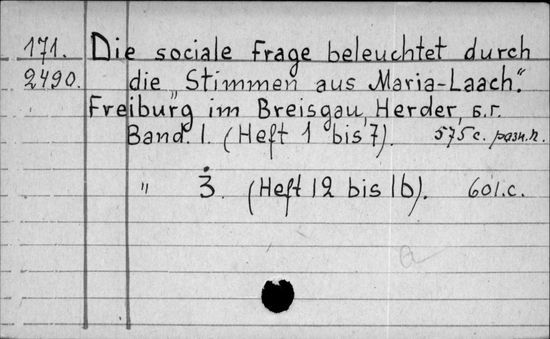 171. Die sociale Frage beleuchtet durch
2490. die „Stimmen aus Maria-Laach."
Freiburg im Breisgau, Herder, s.г.
Band. I. (Heft 1 bis 7). 575 c. разн. п.
" 3. (Heft 12 bis 16). 601. c.
a